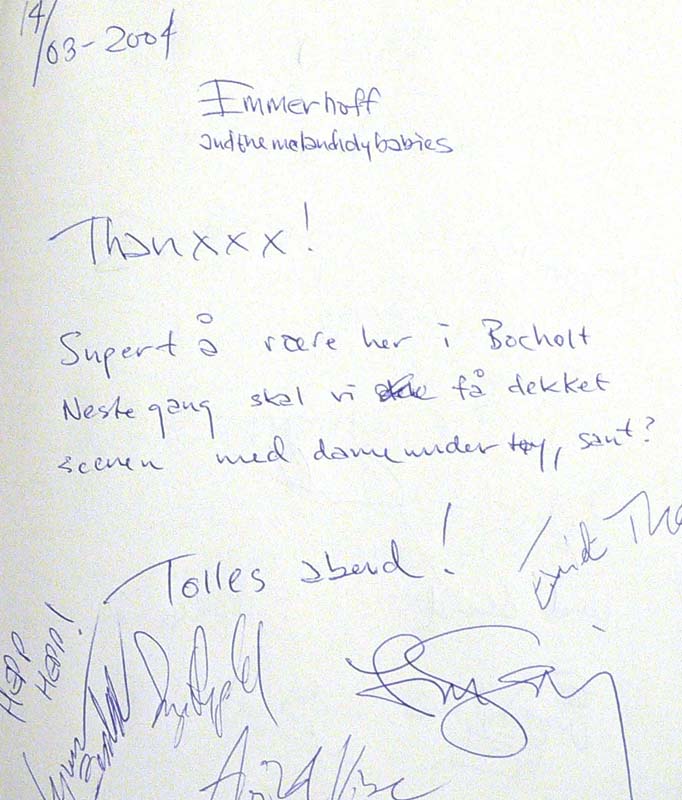 14/03-2004
Emmerhoff
and the melancholy babies
Thanxxx!
Supert å være her i Bocholt
Neste gang skal vi få dekket
scenen med dameundertøy, sant?
Tolles abend!
HEPP
HEPP!